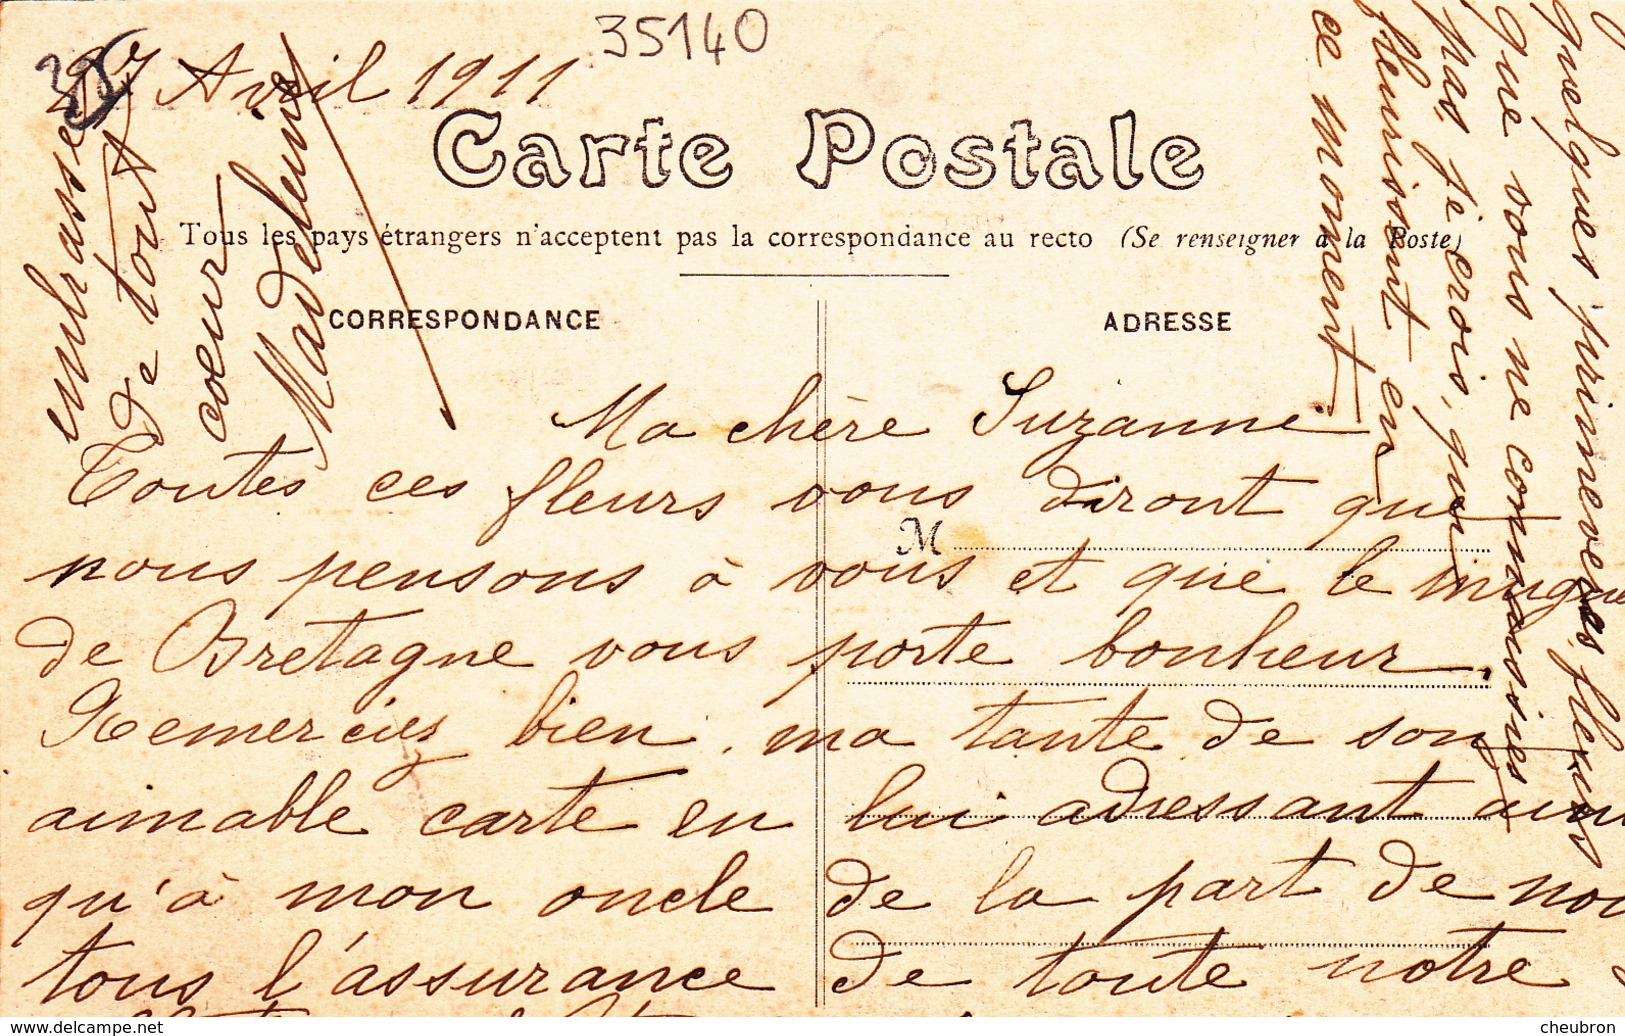 35140
27 Avril 1911
Carte Postale
Tous les pays étrangers n'acceptent pas la correspondance au recto (Se renseigner à la Poste)
CORRESPONDANCE
ADRESSE
M
Ma chère Suzanne
Toutes ces fleurs vous diront que
nous pensons à vous et que le mugue
de Bretagne vous porte bonheur,
Remerciez bien ma tante de son
aimable carte en lui adressant ain
qu'à mon oncle de la part de nou
tous l'assurance de toute notre
quelques primevères, fleurs
que vous ne connaissiez
pas, je crois, qui
fleurissent en
ce moment
embrasse
de tout
cœur
Madeleine
delcampe.net
cheubron